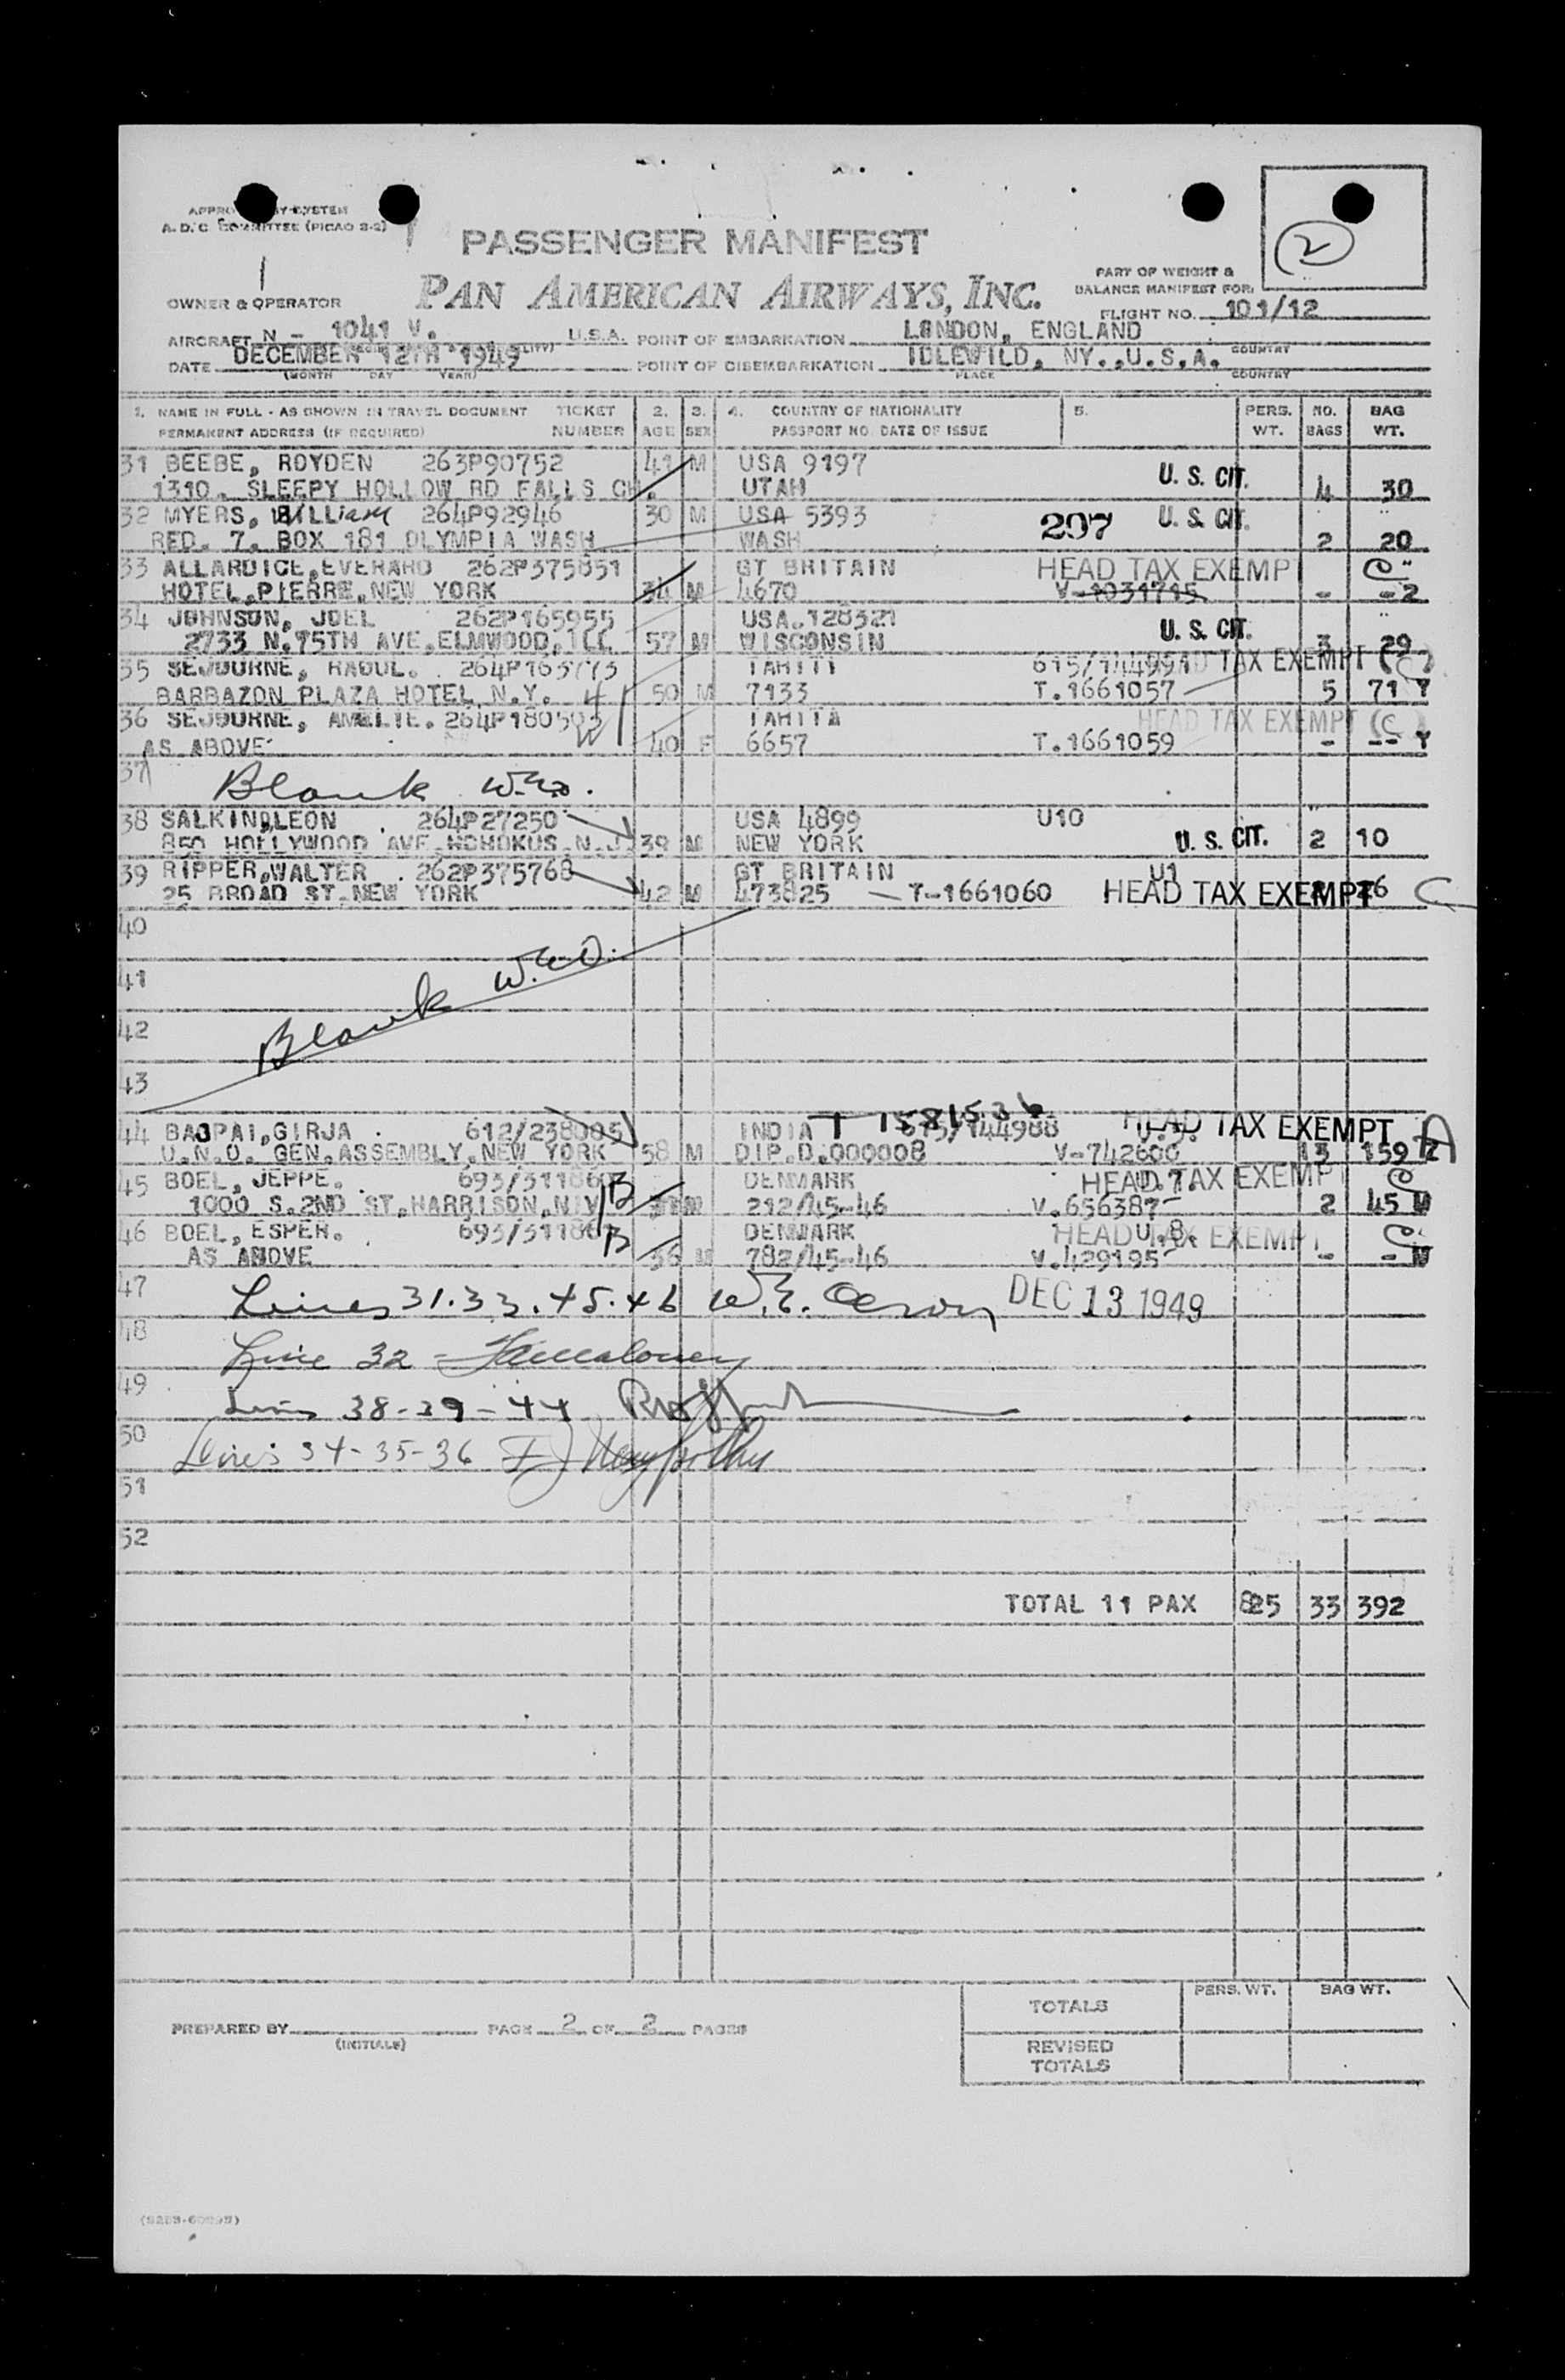 APPRO Y SYSTEM
A. D. C COMMITTEE (PICAO 2-2)
2
PASSENGER MANIFEST
PAN AMERICAN AIRWAYS, INC.
PART OF WEIGHT &
BALANCE MANIFEST FOR:
OWNER & OPERATOR
FLIGHT NO. 101/12
AIRCRAFT N - 1041 V. U.S.A. POINT OF EMBARKATION LONDON, ENGLAND
DATE DECEMBER 12TH 1949 POINT OF DISEMBARKATION IDLEWILD, NY.,U.S.A. COUNTRY
(MONTH DAY YEAR) PLACE COUNTRY
1. NAME IN FULL - AS SHOWN IN TRAVEL DOCUMENT TICKET 2. 3. 4. COUNTRY OF NATIONALITY 5. PERS. NO. BAG
PERMANENT ADDRESS (IF REQUIRED) NUMBER AGE SEX PASSPORT NO. DATE OF ISSUE WT. BAGS WT.
31 BEEBE, ROYDEN 263P90752 41 M USA 9197 U. S. CIT.
1310. SLEEPY HOLLOW RD FALLS CH. UTAH 4 30
32 MYERS, William 264P92946 30 M USA 5393 207 U. S. CIT.
RED. 7. BOX 181 OLYMPIA WASH WASH 2 20
33 ALLARDICE,EVERARD 262P375851 GT BRITAIN HEAD TAX EXEMP C
HOTEL,PIERRE,NEW YORK 34 M 4670 V-1031715 - -2
34 JOHNSON, JOEL 262P165955 USA.128321 U. S. CIT.
2733 N.75TH AVE,ELMWOOD,ILL 57 M WISCONSIN 3 29
35 SEJOURNE, RAOUL. 264P163773 TAHITI 615/144991 TAX EXEMPT (C)
BARBAZON PLAZA HOTEL,N.Y. 50 M 7133 T.1661057 5 71 Y
36 SEJOURNE, AMELIE. 264P180503 TAHITA HEAD TAX EXEMPT (C)
AS ABOVE 40 F 6657 T.1661059 - -- Y
37 Blank W.E.O.
38 SALKIND,LEON 264P27250 USA 4899 U10
850 HOLLYWOOD AVE,HOHOKUS,N.J. 39 M NEW YORK U. S. CIT. 2 10
39 RIPPER,WALTER 262P375768 GT BRITAIN U1
25 BROAD ST,NEW YORK 42 M 473825 - T-1661060 HEAD TAX EXEMPT 6 C
40
41
Blank W.E.O.
42
43
T 1581536
44 BAJPAI,GIRJA 612/238005 INDIA 615/144988 HEAD TAX EXEMPT A
U.N.O. GEN.ASSEMBLY,NEW YORK 58 M DIP.D.000008 V-742600 13 159
45 BOEL, JEPPE. DENMARK HEAD TAX EXEMPT C
1000 S.2ND ST,HARRISON,N.Y. B M 212/45-46 V.656387 2 45
46 BOEL, ESPER. DENMARK HEAD TAX EXEMPT C
AS ABOVE B 36 M 782/45-46 V.429195 - -
47 Lines 31.33.45.46 W.E. DEC 13 1949
48 Line 32 -
49 Lines 38-39-44
50 Lines 34-35-36
51
52
TOTAL 11 PAX 825 33 392
PERS. WT. BAG WT.
TOTALS
PREPARED BY PAGE 2 OF 2 PAGES
(INITIALS)
REVISED
TOTALS